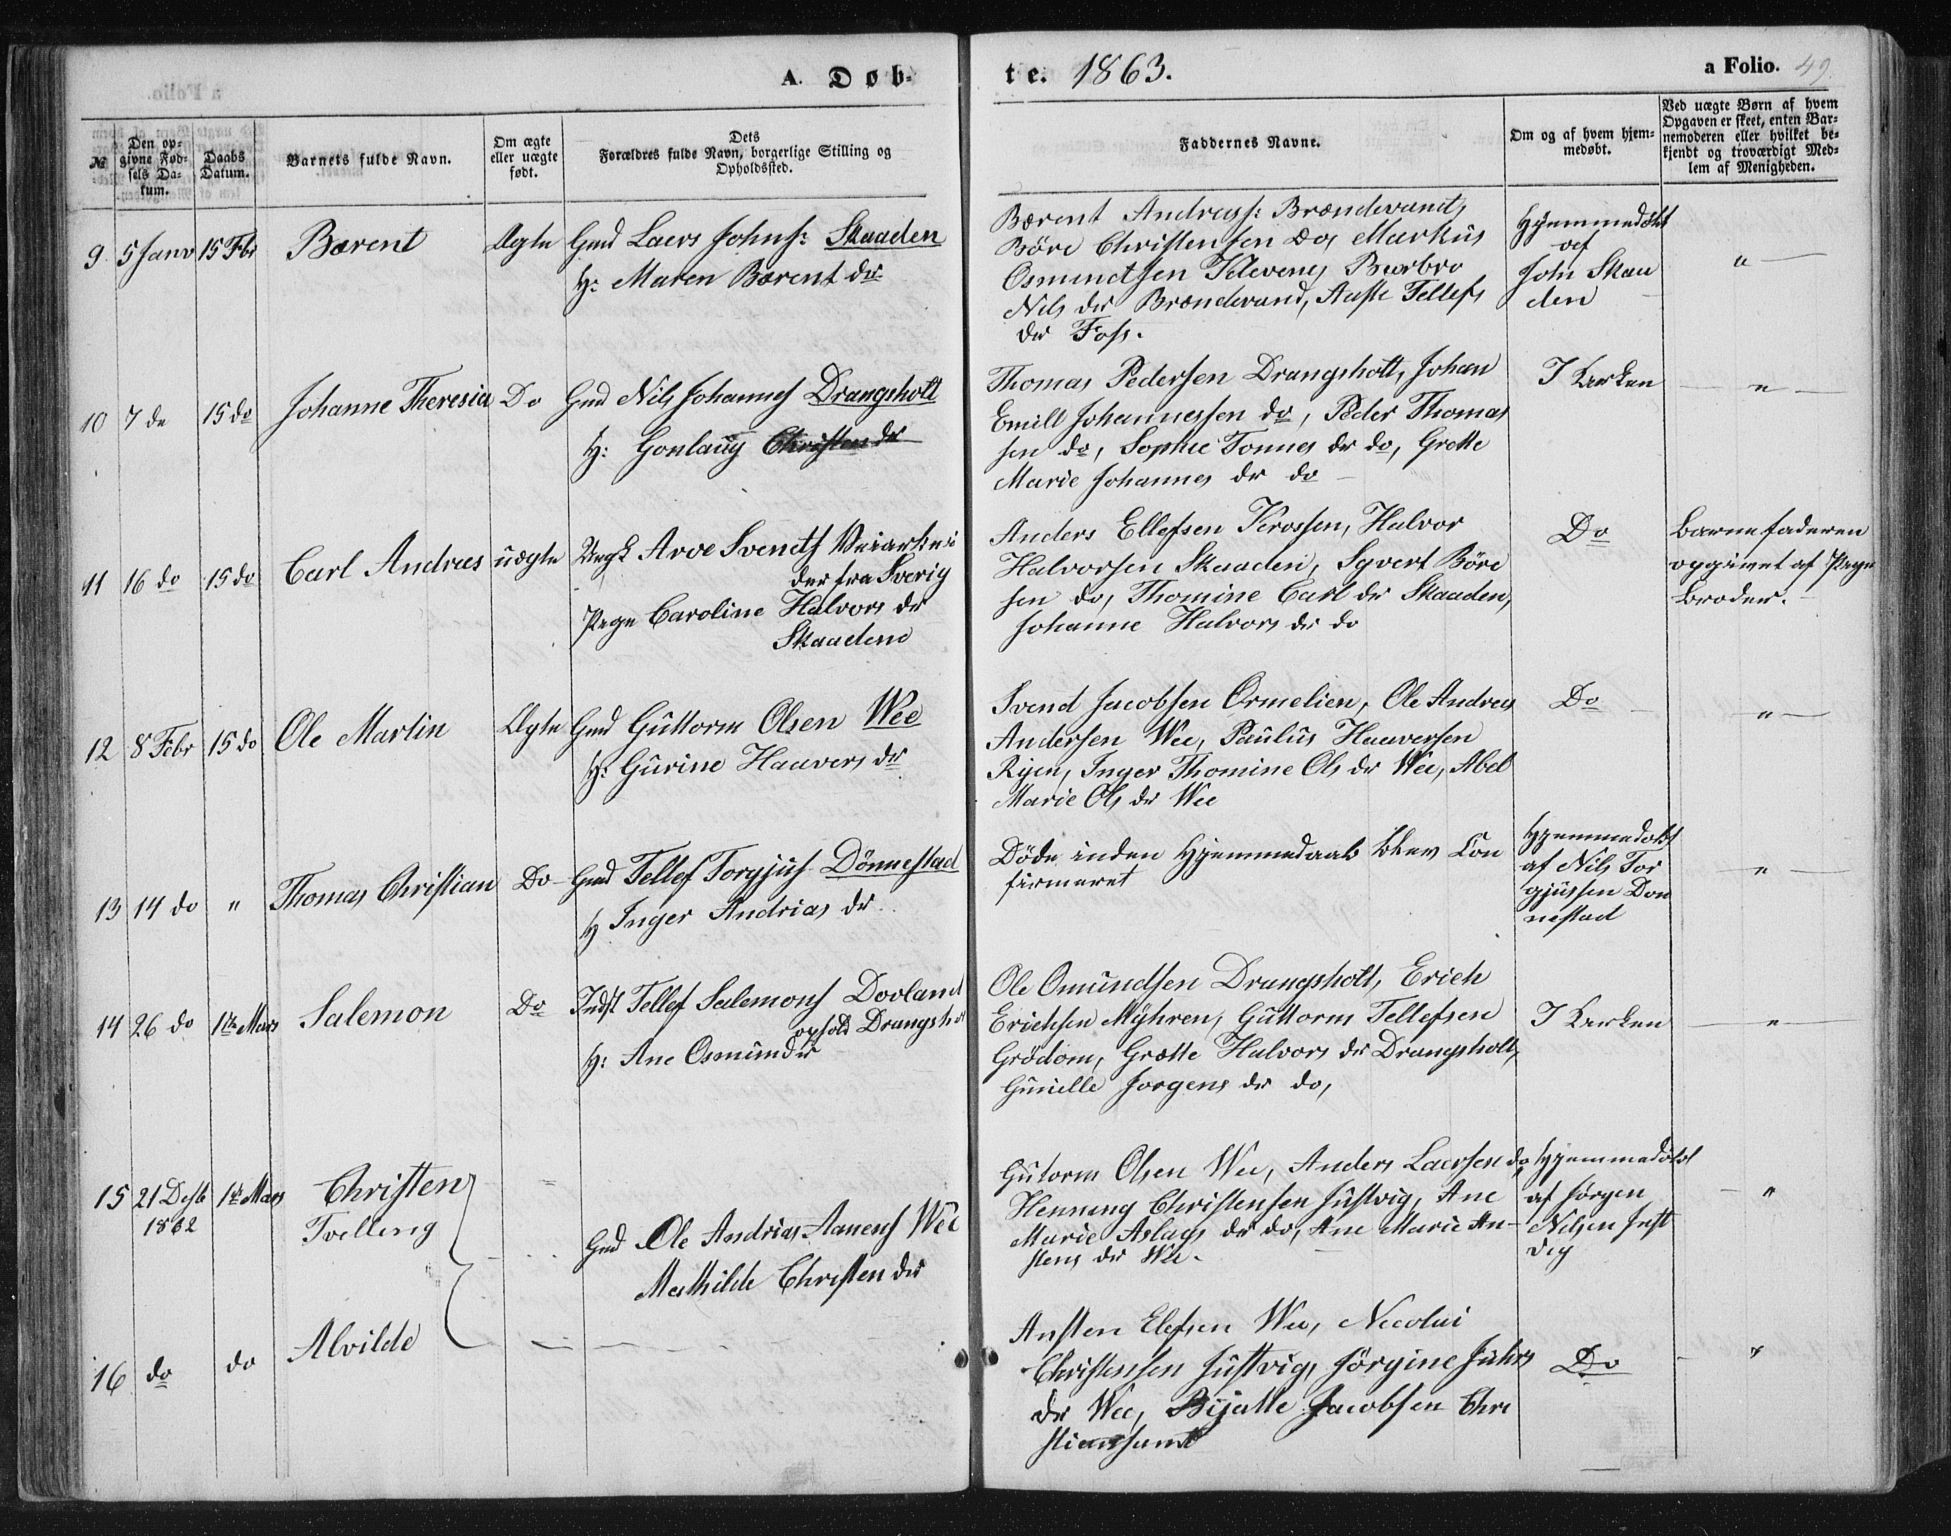 A. Døb-
te. 1863.
a Folio. 49.
№
Den op-
givne Fød-
sels Da-
tum.
Daabs
Datum.
Barnets fulde Navn.
Om ægte
eller uægte
født.
Dets
Forældres fulde Navn, borgerlige Stilling og
Opholdssted.
Faddernes Navne.
Om og af hvem hjem-
medøbt.
Ved uægte Børn af hvem
Opgaven er skeet, enten Bar-
nemoderen eller hvilket be-
kjendt og troværdigt Med-
lem af Menigheden.
9 5 Janv 15 Fbr Bærent Ægte Gmd Laers Johns: Skaaden
H: Maren Bærent dr
Bærent Andreass: Brændevand,
Böre Christensen do, Markus
Osmundsen
Nils dr Brændevand, Aaste Tellefs
dr Foss.
Hjemmedöbt
af
John Skaa
den
"
10 7 do 15 do Johanne Theresia Do Gmd Nils Johannes Drangsholt
H: Gonlaug Christen dr
Thomas Pedersen Drangsholt, Johan
Emill Johannessen do, Peder Thomas
sen do, Sophie Tonnes dr do, Grette
Marie Johannes dr do
I Kirken
"
11 16 do 15 do Carl Andreas uægte Ungk Arve Svends Veiarbei
der fra Sverig
Pige Caroline Halvors dr
Skaadene
Anders Ellefsen Krossen, Halvor
Halvorsen Skaaden, Syvert Böre
sen do, Thomine Carl dr Skaaden,
Johanne Halvors dr do
Do
Barnefaderen
opgivet af Pigens
Broder.
12 8 Febr 15 do Ole Martin Ægte Gmd Guttorm Olsen Wee
H: Gurine Haavers dr
Svend Jacobsen Ormelien, Ole Andreas
Andersen Wee, Paulus Haaversen
Rijen, Inger Thomine Ols dr Wee, Abel
Marie Ols dr Wee
Do
"
13 14 do " Thomas Christian Do Gmd Tellef Torgjus Dönnestad
H Inger Andrias dr
Döde inden Hjemmedaab blev Con
firmeret
Hjemmedöbt
af Nils Tor
gjussen Don
nestad
"
14 26 do 1ste Mars Salemon Do Indst Tellef Salemons Dovland
ophold Drangsholt
H: Ane Osmunds dr
Ole Omundsen Drangsholt, Erich
Erichsen Myhren, Guttorm Tellefsen
Grödom, Grætte Halvors dr Drangsholt,
Gunille Jorgens dr do,
I Kirken
"
15 21 Desb 1ste Mars Christen
1862
Tvelling
Gmd Ole Andrias Aanens Wee
Mathilde Christen dr
Gutorm Olsen Wee, Anders Laersen do
Henning Christensen Justvig, Ane
Marie Aslags dr do, Ane Marie An-
stens dr Wee.
Hjemmedöbt
af Jörgen
Nilsen Just
vig
"
16 do do Alvilde
Ansten Elefsen Wee, Necolai
Christensen Justvig, Jörgine
dr Wee, Bijatte Jacobsen Chri
stianssand
Do
"